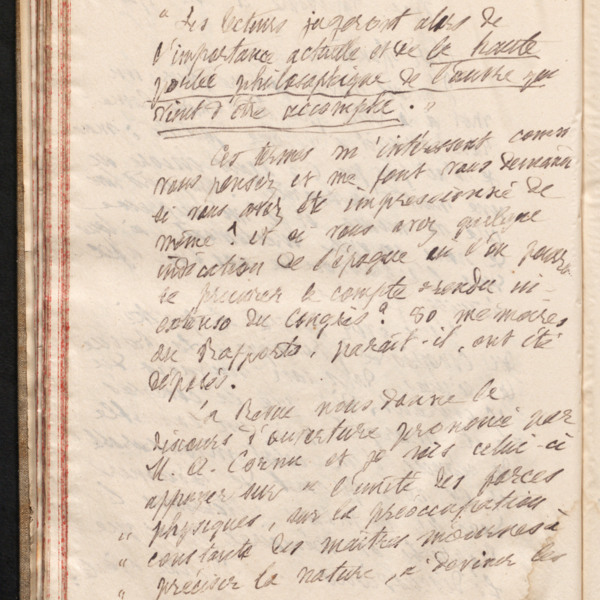 " Les lecteurs jugeront alors de
l'importance actuelle et de la haute
portée philosophique de l'œuvre qui
vient d'être accomplie. "
Ces termes m'intéressent comme
vous pensez et me font vous demander
si vous avez été impressionné de
même ? et si vous avez quelque
indication de l'époque où l'on pourra
se procurer le compte rendu in-
extenso du Congrès ? 80 mémoires
ou Rapports, paraît-il, ont été
déposés.
La Revue nous donne le
discours d'ouverture prononcé par
M. A. Cornu et je vois celui-ci
appuyer sur " l'unité des forces
" physiques, sur la préoccupation
" constante des maîtres modernes à
" préciser la nature, à deviner les